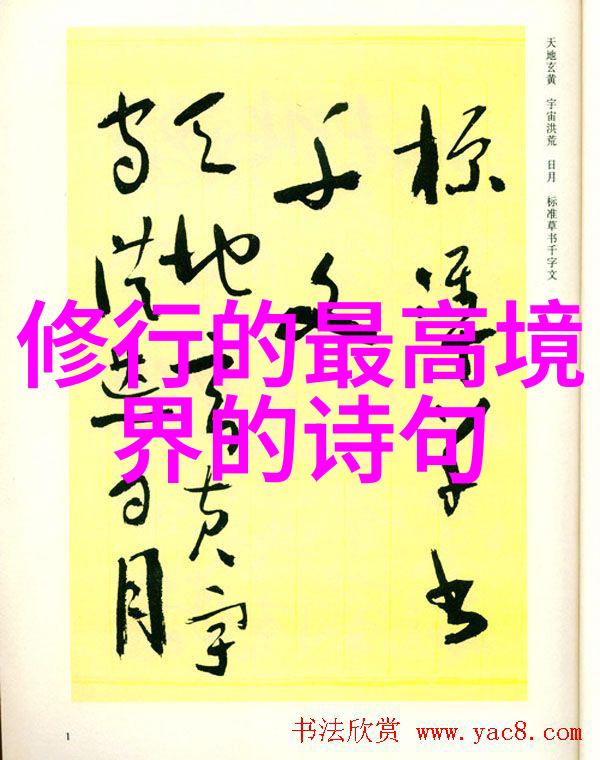 天地玄黄 宇宙洪荒 日月 标准草书千字文
標準草書
千文
天地玄黄宇
宙洪荒日月
修行的最高境
界的诗句
1
书法欣赏 www.yac8.com